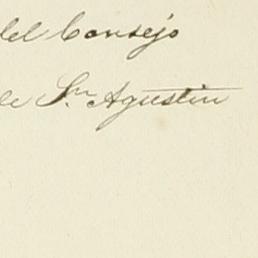 del Consejo
de Sn. Agustin